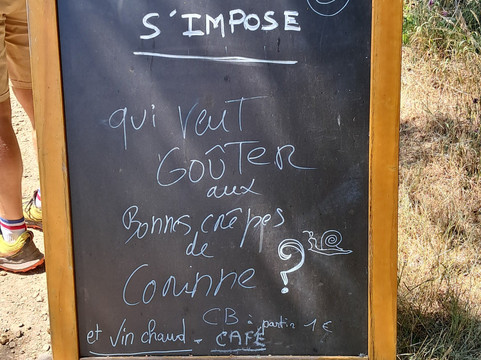 S'IMPOSE
qui veut
GOÛTER
aux
Bonnes crêpes
de
Corinne ?
CB : partir 1 €
et Vin chaud - CAFÉ